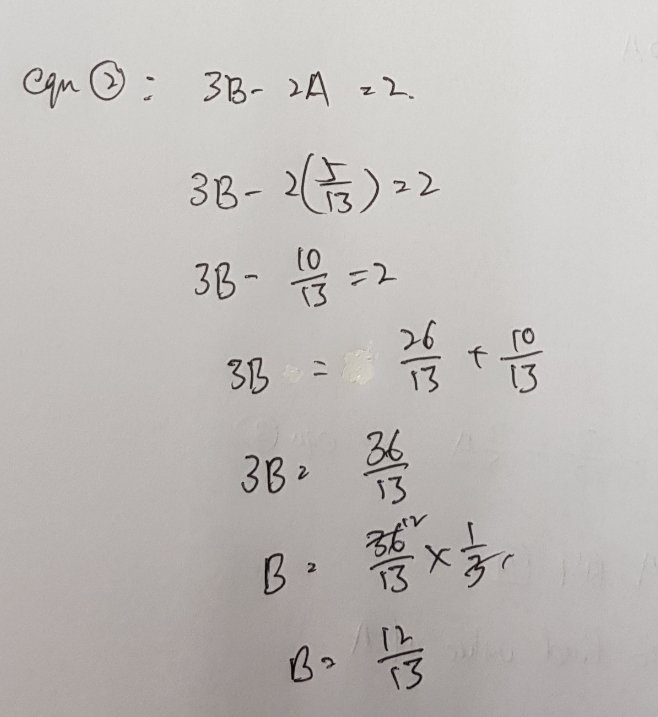 eqn ②: 3B - 2A = 2.
3B - 2(5/13) = 2
3B - 10/13 = 2
3B = 26/13 + 10/13
3B = 36/13
B = 36/13 12 × 1/3
B = 12/13